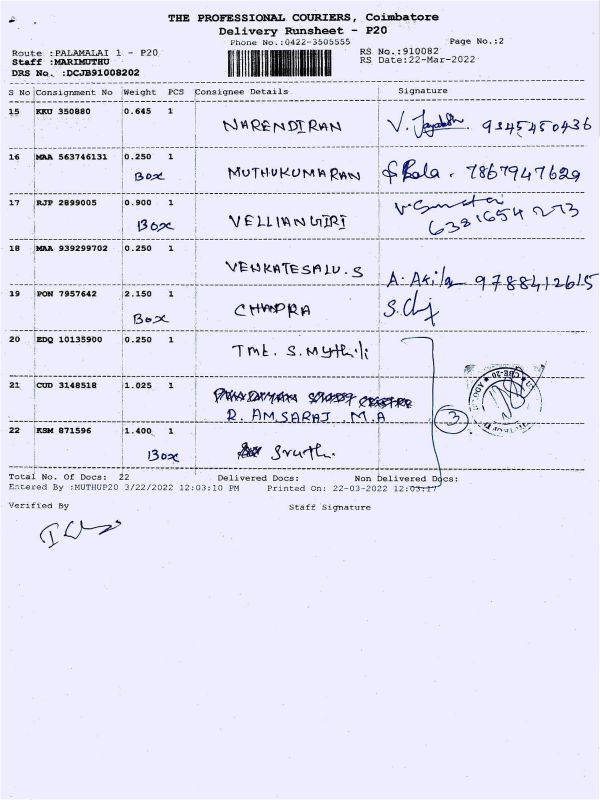 THE PROFESSIONAL COURIERS, Coimbatore
Delivery Runsheet - P20
Phone No.:0422-3505555 Page No.:2
Route :PALAMALAI 1 - P20 RS No.:910082
Staff :MARIMUTHU RS Date:22-Mar-2022
DRS No. :DCJB91008202
S No Consignment No Weight PCS Consignee Details Signature
15 KKU 350880 0.645 1
NARENDIRAN V. 9345450436
16 MAA 563746131 0.250 1
Box MUTHUKUMARAN Bala . 7867947629
17 RJP 2899005 0.900 1
Box VELLIANGIRI 6381654273
18 MAA 939299702 0.250 1
VENKATESALU.S A. Akila 9788412615
19 PON 7957642 2.150 1
Box CHANDRA
20 EDQ 10135900 0.250 1
Tmt. S. Mythili
21 CUD 3148518 1.025 1
R. AMSARAJ .M.A 3
22 KSM 871596 1.400 1
Box Sruthi.
Total No. Of Docs: 22 Delivered Docs: Non Delivered Docs:
Entered By :MUTHUP20 3/22/2022 12:03:10 PM Printed On: 22-03-2022 12:03:17
Verified By Staff Signature